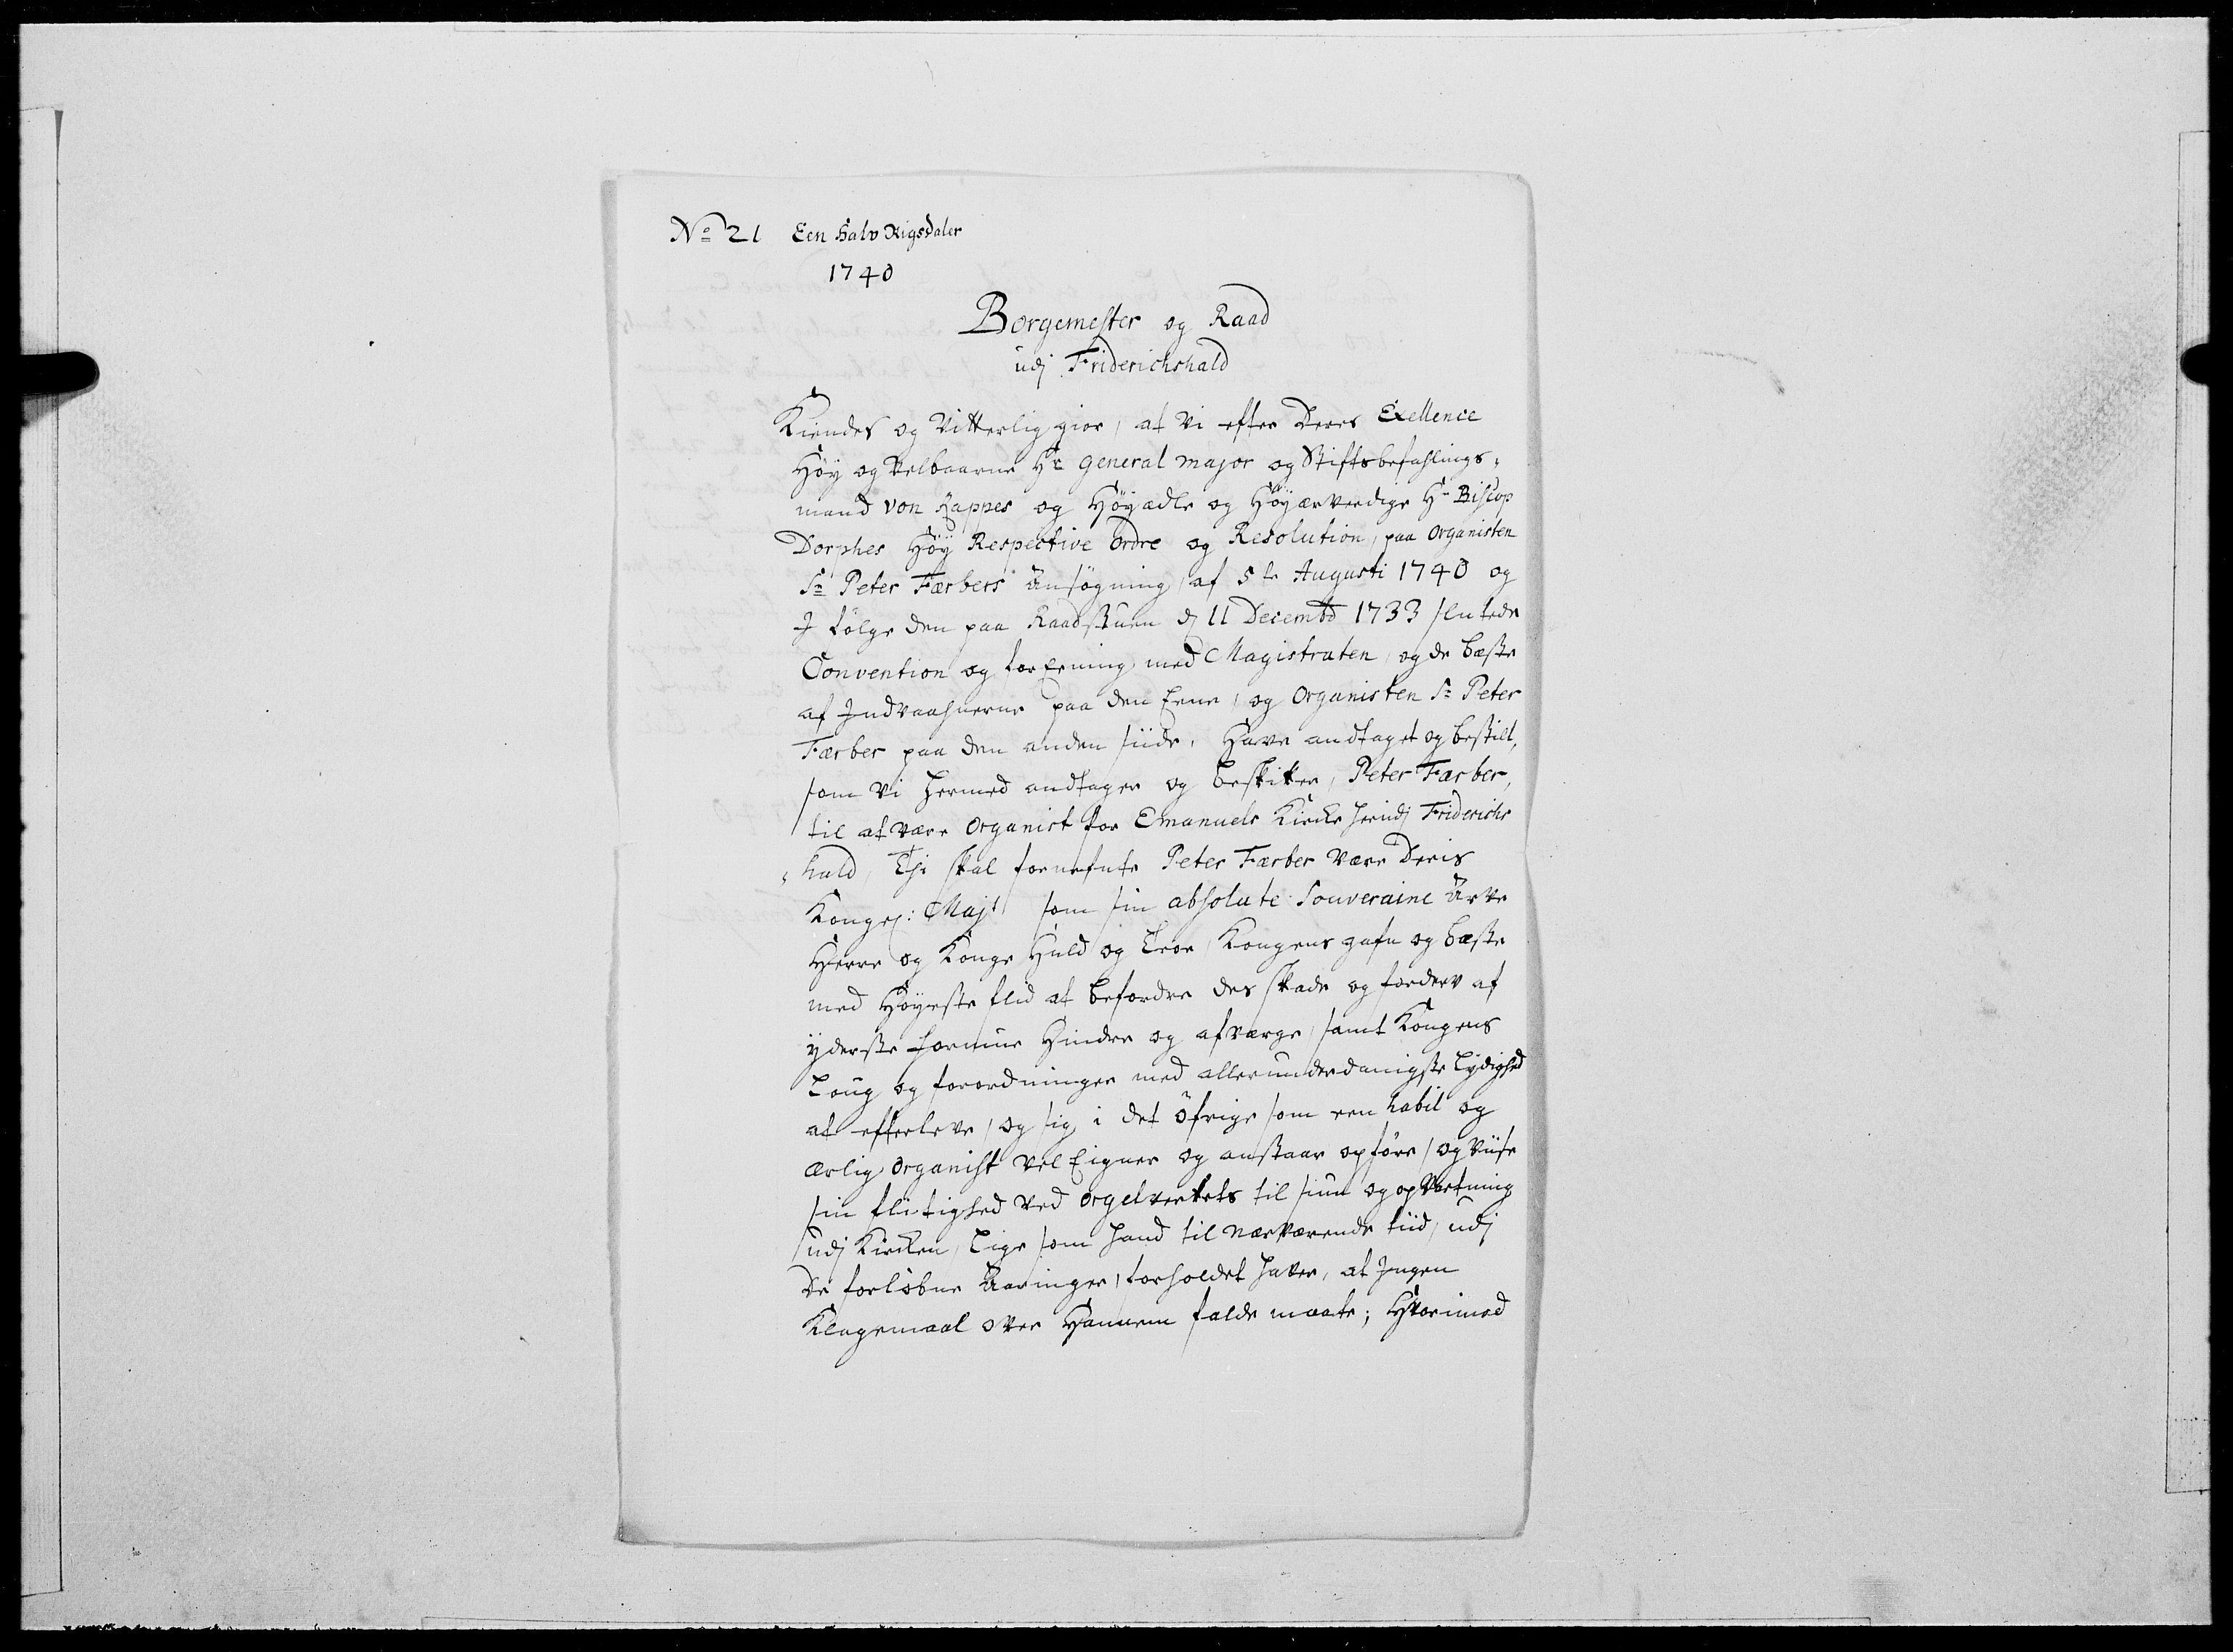 No 21 Een Halv Rigsdaler
1740
Borgemester og Raad
udj Friderichshald
Kiendes og Vitterlig giør, at Vi efter Deres Exellence
Høy og Velbaarne Hr General major og Stiftsbefahlings-
mand von Rappes og Høyædle og Høyærverdige Hr Biscop
Dorphes Høy Respective Ordre og Resolution, paa Organisten
Sr Peter Færbers Ansøgning af 5te Augusti 1740 og
I følge den paa Raadstuen d 11 Decembr 1733 sluttede
Convention og forEening med Magistraten, og de bæste
af Indvaahnerne paa den Eene, og Organisten Sr Peter
Færber paa den anden siide, Have andtaget og bestilt,
som Vi hermed andtager og beskikker, Peter Færber,
til at være Organist for Emanuels Kircke herudj Friderichs
-hald, Thi skal fornefnte Peter Færber være Deris
Kongel: Majt som sin absolute Souveraine Arve
Herre og Konge Huld og Troe, Kongens gafn og bæste
med Høyeste flid at befordre des skade og forderv af
yderste formue Hindre og afværge, samt Kongens
Loug og forordninger med allerunderdanigste Lydighed
at efterleve, og sig i det øfrige som een habil og
ærlig Organist vel Eigner og anstaar opføre, og viise
sin flitighed ved Orgelverkets til siun og opvartning
udj Kircken, Lige som hand til nærværende tiid, udj
De forløbne Aaringer, forholdet haver, at Ingen
Klagemaal over Hannem falde maatte; Hvorimod